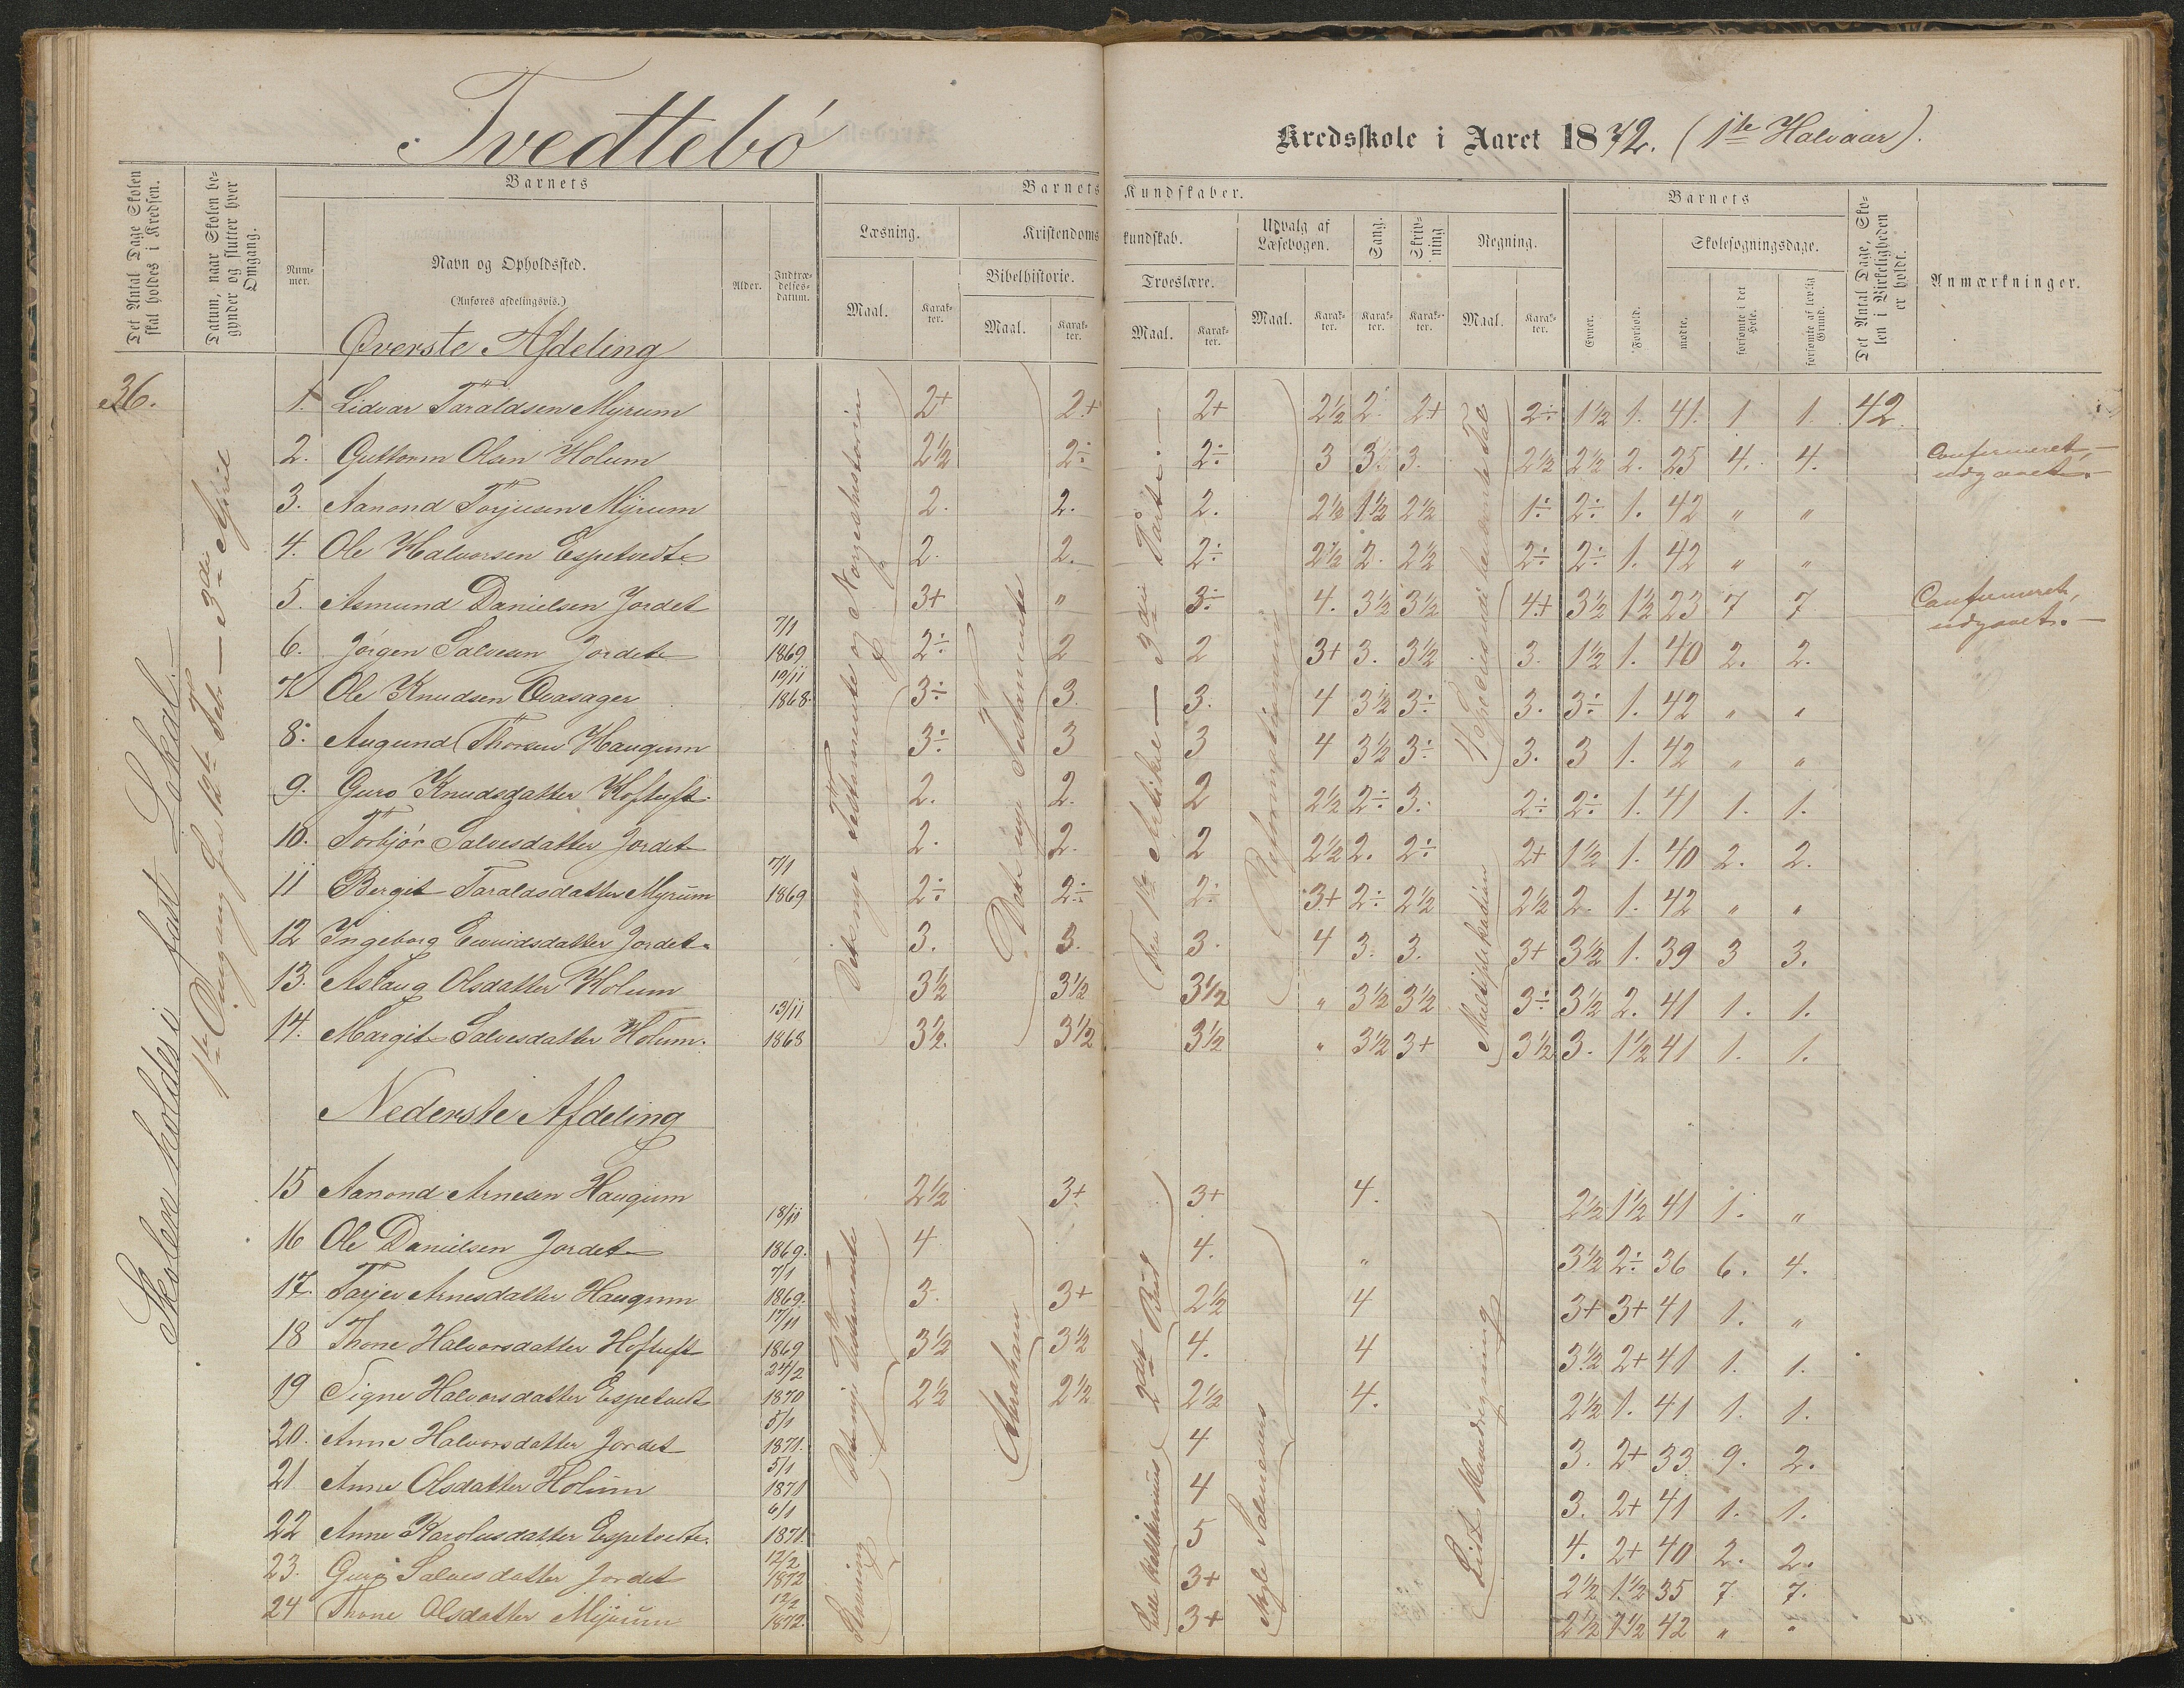 Tvedtebö
Kredsskole i Aaret 1872. (1ste Halvaar).
Det Antal Dage Skolen skal holdes i Kredsen.
Datum, naar Skolen begynder og slutter hver Omgang.
Barnets
Nummer.
Navn og Opholdssted.
(Anføres afdelingsvis.)
Alder.
Indtrædelsesdatum.
Barnets Kundskaber.
Læsning.
Maal.
Karakter.
Kristendomskundskab.
Bibelhistorie.
Maal.
Karakter.
Troeslære.
Maal.
Karakter.
Udvalg af Læsebogen.
Maal.
Karakter.
Sang.
Karakter.
Skrivning
Karakter.
Regning.
Maal.
Karakter.
Barnets
Evner.
Forhold.
Skolesøgningsdage.
mødte.
forsømte i det Hele.
forsømte af lovlig Grund.
Det Antal Dage, Skolen i Virkeligheden er holdt.
Anmærkninger.
Øverste Afdeling
36.
Skolen holdes i fast Lokal.
1ste Omgang fra 12te Feb — 3die April
1. Lidvar Taraldsen Myrum 2+ 2+ 2+ 2½ 2 2+ 2÷ 1½ 1. 41. 1. 1. 42
2. Guttorm Olsen Holum 2½ 2÷ 2÷ 3 3. 3. 2½ 2½ 2. 25 4. 4. Confirmeret, udgaaet.
3. Aanond Torjusen Myrum 2. 2. 2. 2½ 1½ 2½ 1÷ 2÷ 1. 42 " "
4. Ole Halvorsen Espetvedt 2. 2. 2÷ 2½ 2. 2½ 2÷ 2÷ 1. 42 " "
5. Asmund Danielsen Jordet 3+ " 3÷ 4. 3½ 3½ 4+ 3½ 1½ 23 7 7 Confirmeret, udgaaet.
6. Jörgen Salvesen Jordet 7/1 1869 2÷ 2 2 3+ 3. 3½ 3. 1½ 1. 40 2. 2.
7. Ole Knudsen Qvasager 19/11 1868. 3÷ 3. 3. 4 3½ 3÷ 3. 3÷ 1. 42 " "
8. Augund Thorsen Haugum 3÷ 3 3 4 3½ 3÷ 3. 3 1. 42 " "
9. Guro Knudsdatter Hoftuft 2. 2. 2 2½ 2÷ 3. 2÷ 2÷ 1. 41 1. 1.
10. Torbjör Salvesdatter Jordet 2. 2. 2 2½ 2. 2÷ 2+ 1½ 1. 40 2. 2.
11 Bergit Taraldsdatter Myrum 7/1 1869 2÷ 2÷ 2÷ 3+ 2÷ 2½ 2½ 2. 1. 42 " "
12 Ingeborg Eivindsdatter Jordet 3. 3. 3. 4 3. 3. 3+ 3½ 1. 39 3 3.
13. Aslaug Olsdatter Holum 3½ 3½ 3½ " 3½ 3½ 3÷ 3½ 2. 41 1. 1.
14. Margit Salvesdatter Holum. 13/11 1868 3½. 3½ 3½ " 3½ 3+ 3½ 3. 1½ 41 1. 1.
Det nye Testamente og Norgeshistorien
Det nye Testamente
Fra 1ste Artikel — 3die Part.
Reformationen
Multiplikation
Nederste Afdeling
15 Aanond Arnesen Haugum 2½ 3+ 3+ 4. 2½ 1½ 41 1. "
16 Ole Danielsen Jordet 18/11 1869. 4 4. " 3½ 2÷ 36 6. 4.
17. Tarjer Arnesdatter Haugum 7/1 1869. 3. 3+ 2½ 4 3+ 3+ 41 1. "
18 Thone Halvorsdatter Hoftuft 17/11 1869 3½ 3½ 4. 4 3½ 2+ 41 1. 1.
19 Signe Halvorsdatter Espetvedt 24/2 1870 2½ 2½ 2½ 4. 2½ 1. 41 1. 1.
20. Anne Halvorsdatter Jordet 5/1 1871. 4 3. 2+ 33 9. 2.
21 Anne Olsdatter Holum 5/1 1871 4 3. 2+ 41 1. 1.
22 Anne Karolusdatter Espetvedt. 6/1 1871. 5 4. 2+ 40 2. 2.
23. Guro Salvesdatter Jordet 12/2 1872 3+ 2½ 1½ 35 7 7.
24 Thone Olsdatter Myrum 12/2 1872. 3+ 2½ 1½ 42 " "
Det nye Testamente
Stavning
Abraham
2det Bud
Lille Katekismus
Nogle Salmevers
Lidt Hovedregning